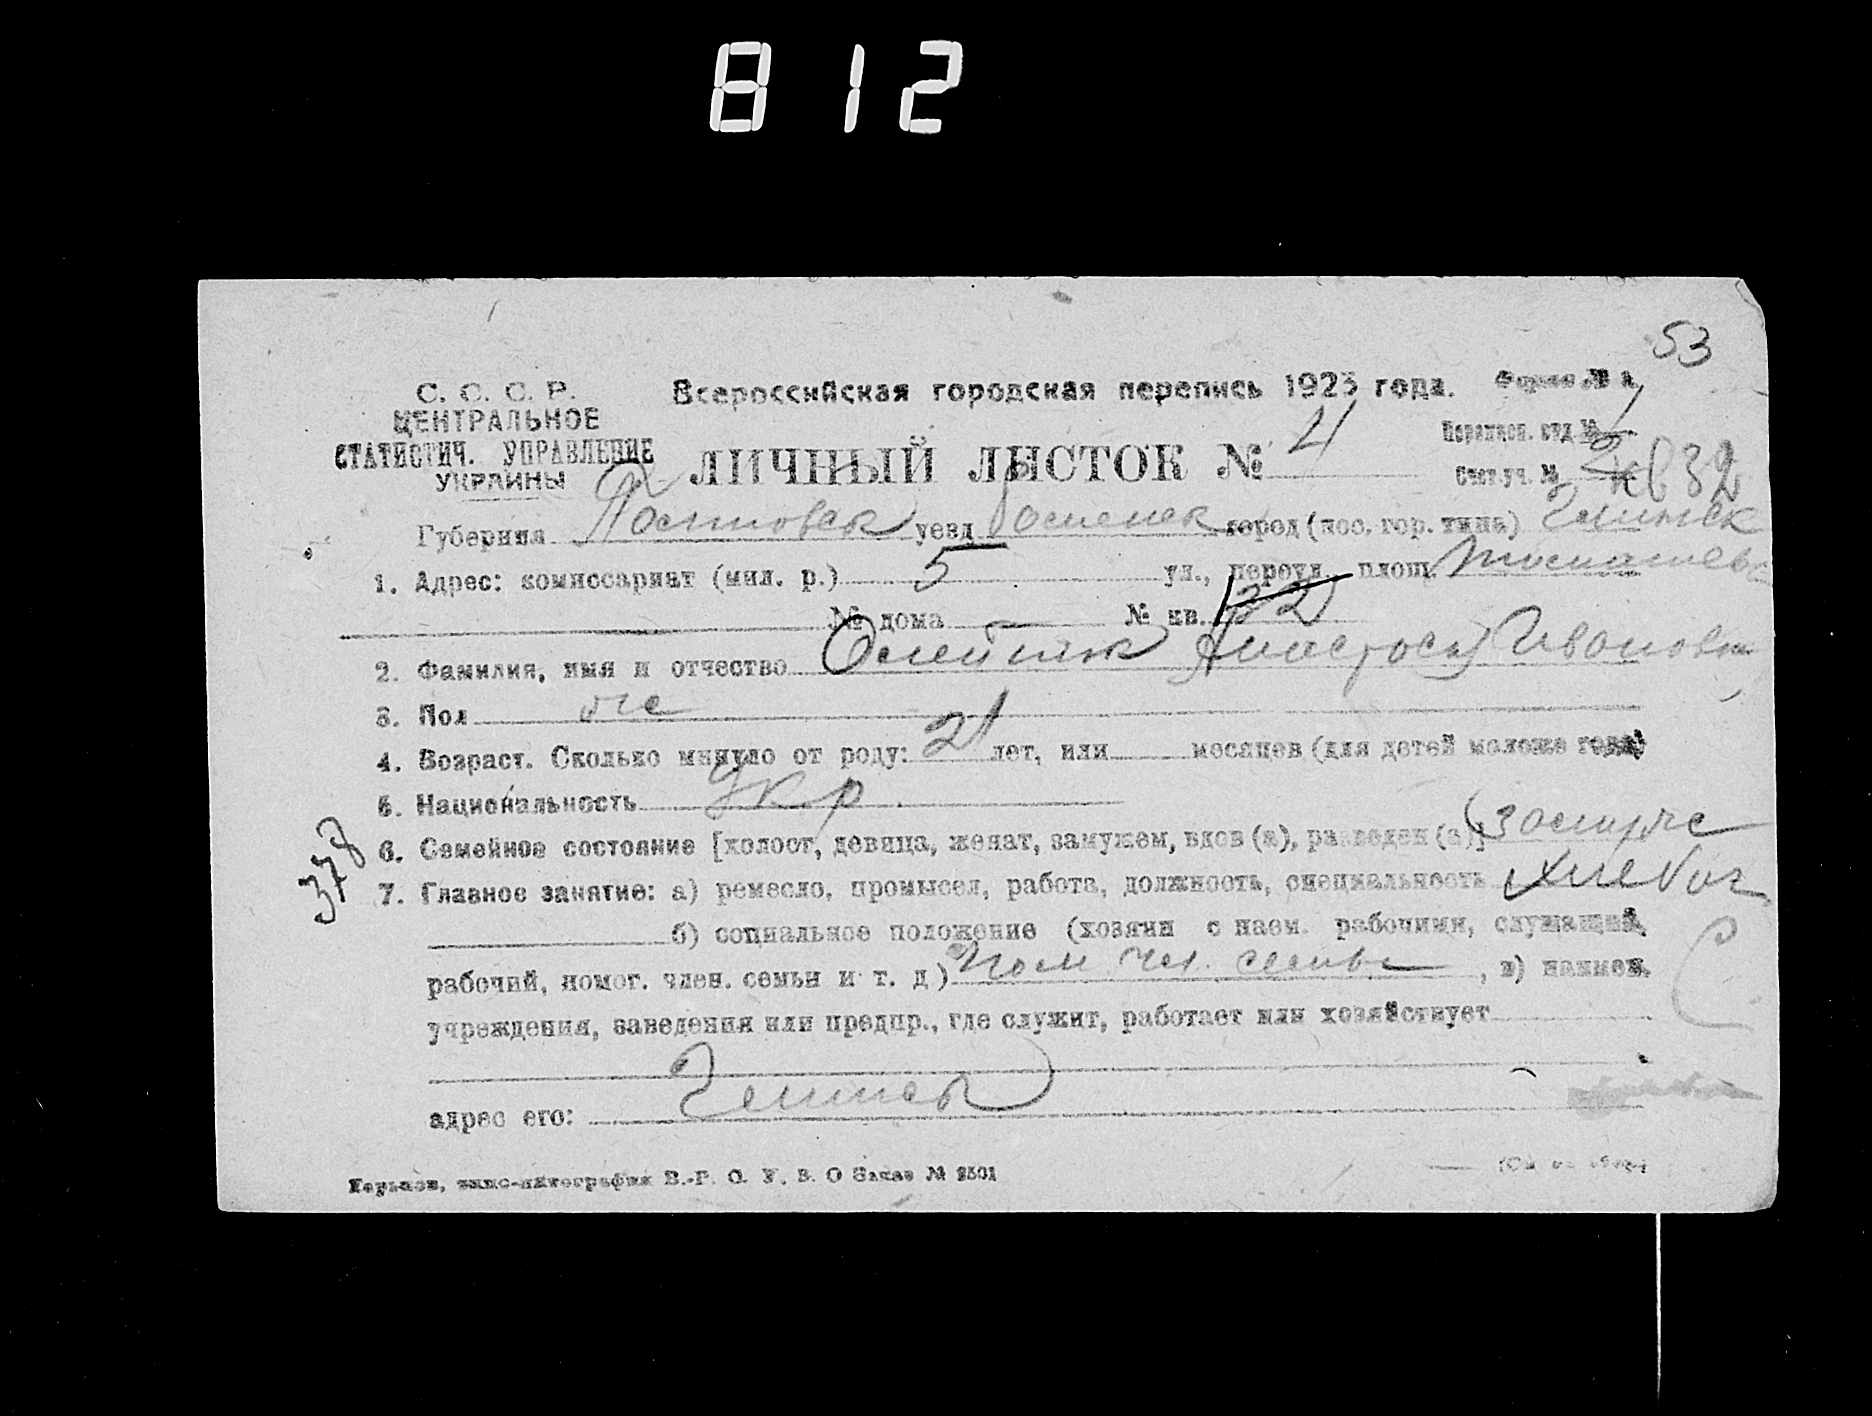 812
53
С. С. С. Р.
ЦЕНТРАЛЬНОЕ
СТАТИСТИЧ. УПРАВЛЕНИЕ
УКРАИНЫ
Всероссийская городская перепись 1923 года. Форма №
Переписн. отд №
ЛИЧНЫЙ ЛИСТОК № 4
Счетч. уч. № кв 32
Губерния Полтовск уезд Роменск город (пос. гор. типа) Глинск
1. Адрес: комиссариат (мил. р.) 5 ул., переул., площ.
№ дома № кв. 32
2. Фамилия, имя и отчество Олейник Анастосия Ивановн
3. Пол же
4. Возраст. Сколько минуло от роду: 21 лет, или месяцев (для детей моложе года)
5. Национальность Укр
378
6. Семейное состояние [холост, девица, женат, замужем, вдов (а), разведен (а)] Зомуже
7. Главное занятие: а) ремесло, промысел, работа, должность, специальность хлебог
б) социальное положение (хозяин с наем. рабочими, служащий,
рабочий, помог. член. семьи и т. д) Пом. чл. семьи , в) наимен.
учреждения, заведения или предпр., где служит, работает или хозяйствует
адрес его: Глинск
Харьков, типо-литография В.-Р. О. У. В. О Заказ № 2501